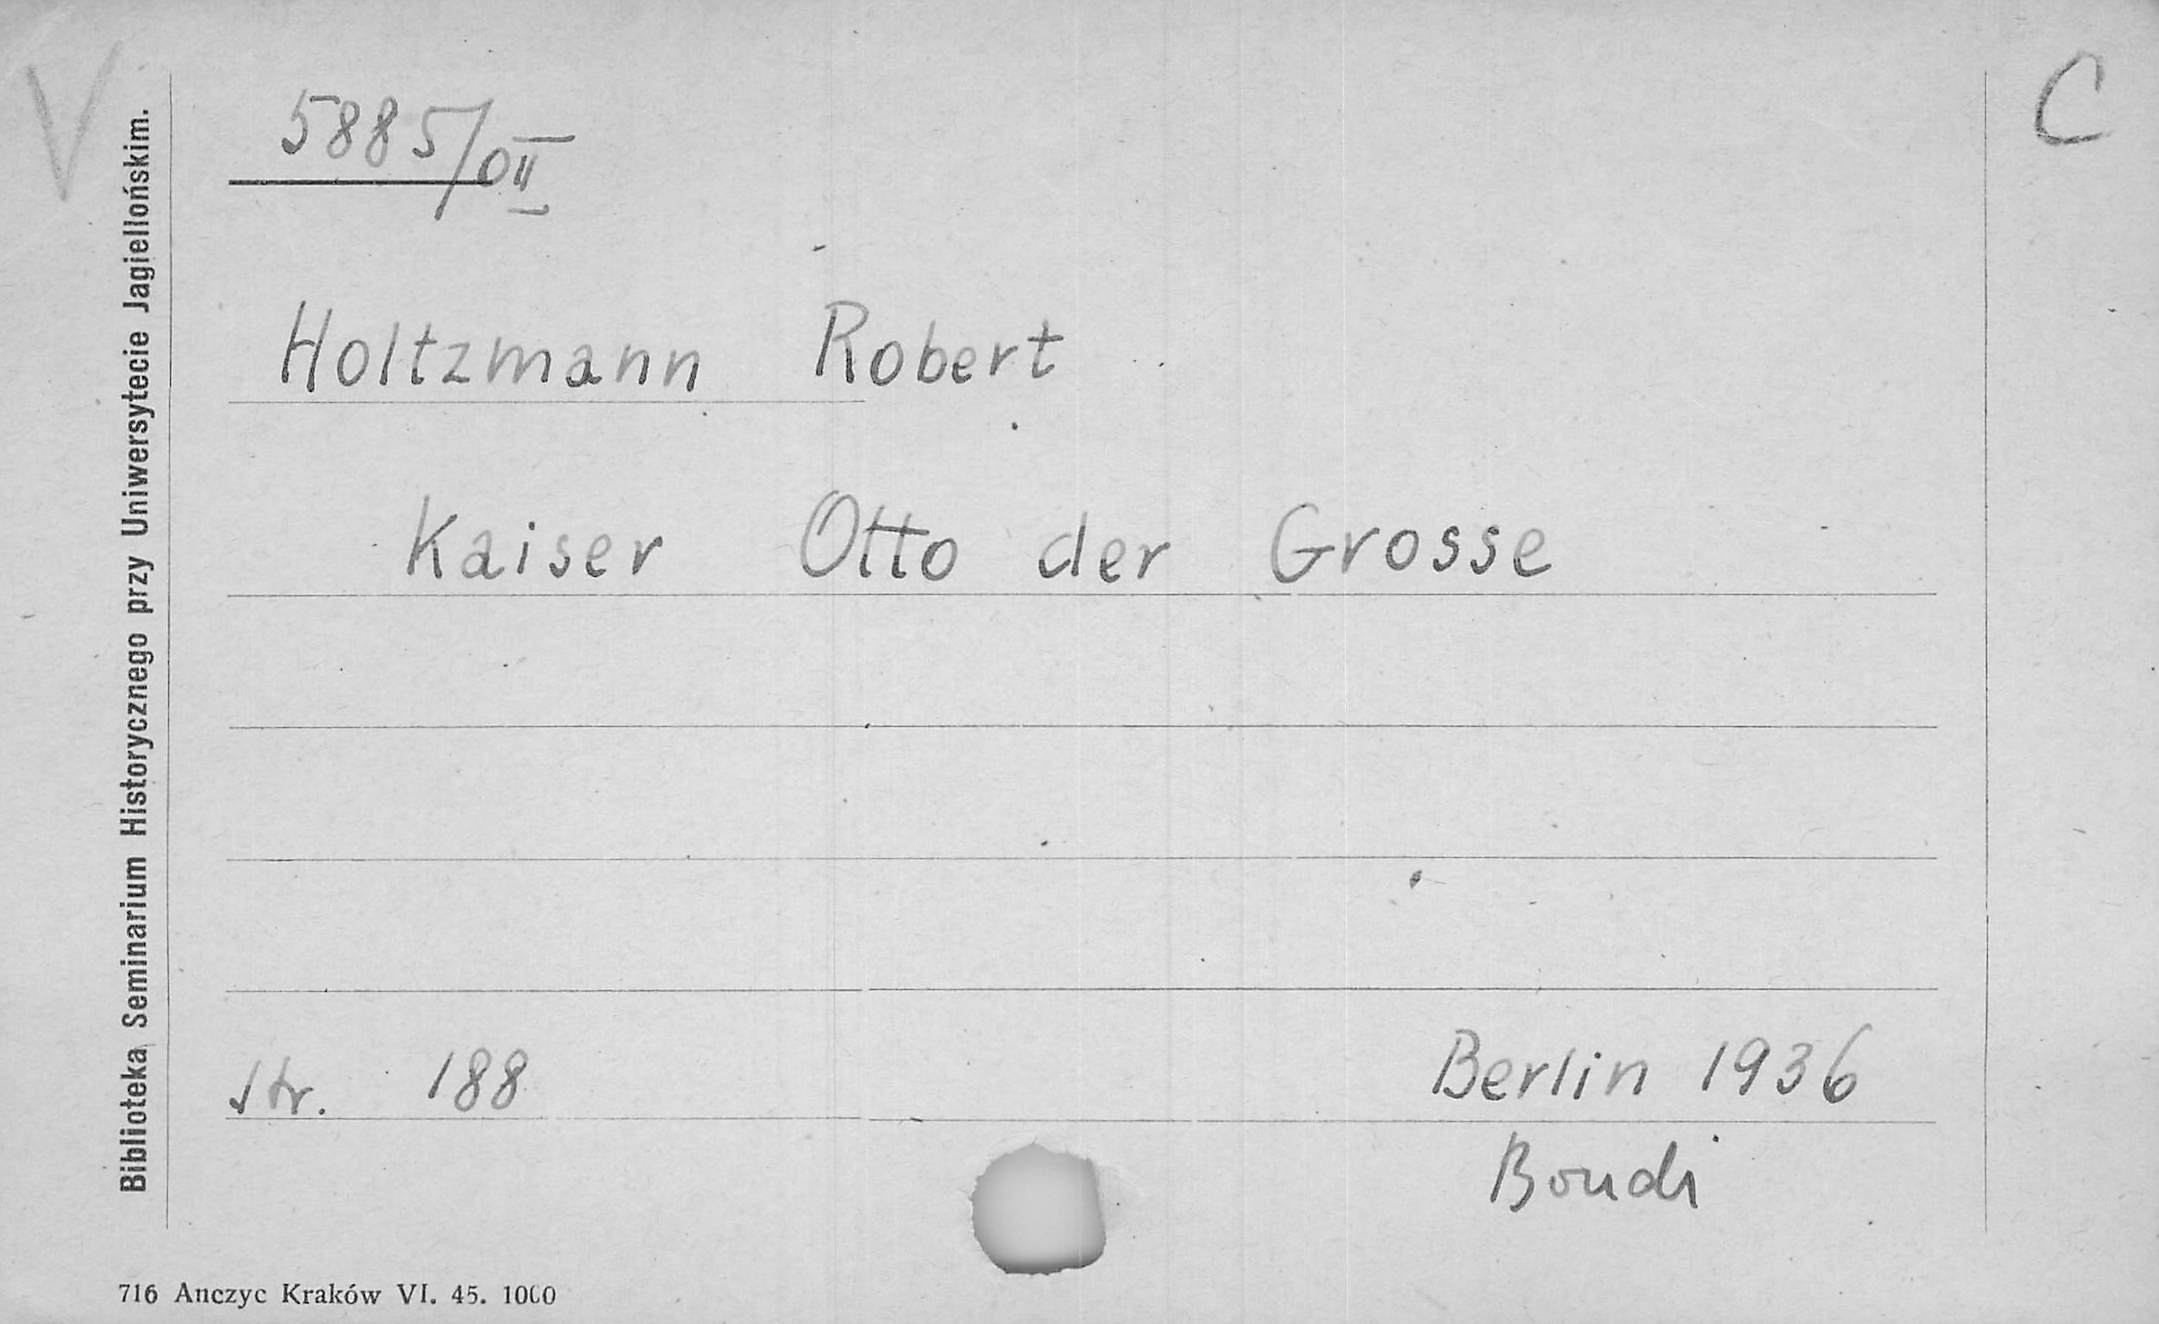 V
C
5885/OII
Holtzmann Robert
Kaiser Otto der Grosse
str. 188
Berlin 1936
Bondi
Biblioteka Seminarium Historycznego przy Uniwersytecie Jagiellońskim.
716 Anczyc Kraków VI. 45. 1000